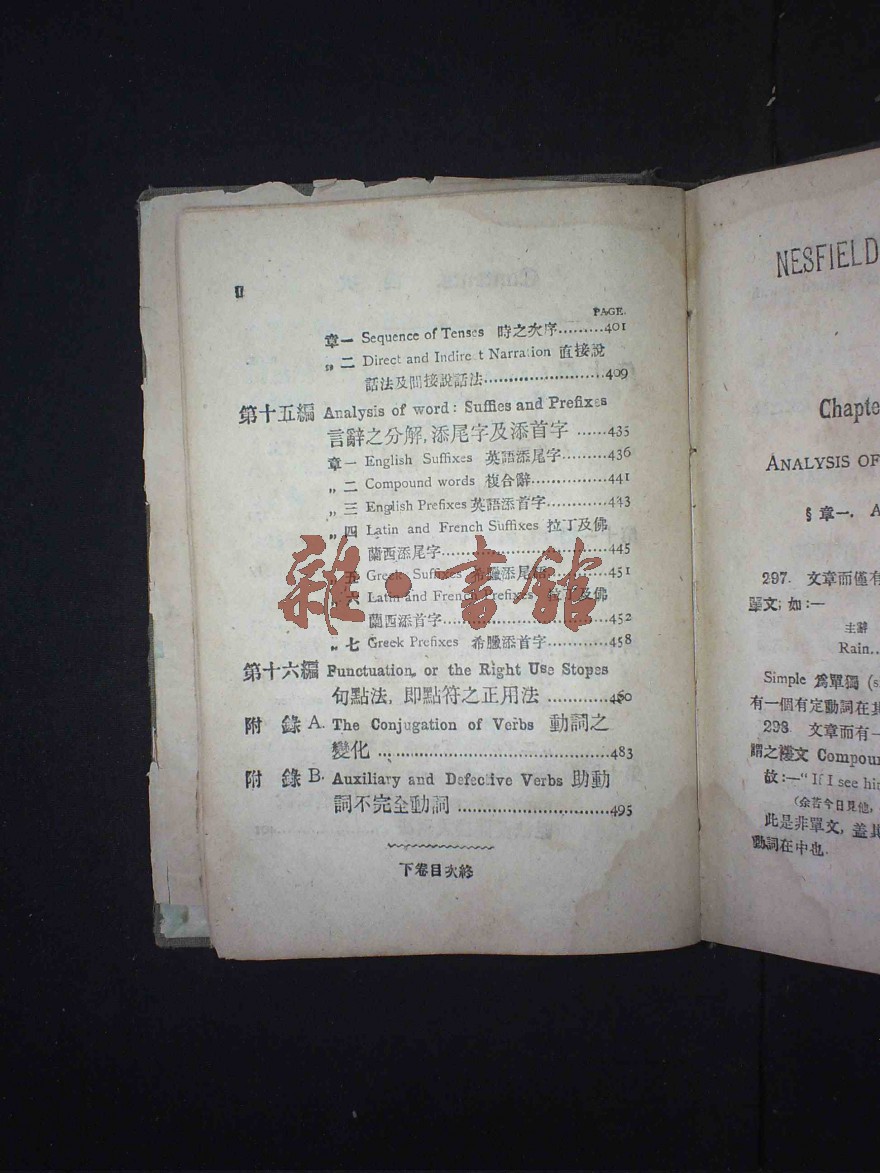 II
PAGE.
章一 Sequence of Tenses 時之次序.........401
„ 二 Direct and Indire t Narration 直接說
話法及間接說話法........................409
第十五編 Analysis of word: Suffies and Prefixes
言辭之分解, 添尾字及添首字 ......435
章一 English Suffixes 英語添尾字..........436
„ 二 Compound words 複合辭............441
„ 三 English Prefixes 英語添首字............443
„ 四 Latin and French Suffixes 拉丁及佛
蘭西添尾字.................................445
五 Greek Suffixes 希臘添尾語.........451
六 Latin and French Prefixes 拉丁及佛
蘭西添首字.................................452
„ 七 Greek Prefixes 希臘添首字............458
第十六編 Punctuation, or the Right Use Stopes
句點法, 即點符之正用法 ............460
附錄 A. The Conjugation of Verbs 動詞之
變化 .......................................483
附錄 B. Auxiliary and Defective Verbs 助動
詞不完全動詞 ...........................495
下卷目次終
雜·書館
NESFIELD
Chapte
ANALYSIS OF
§ 章一. A
297. 文章而僅有
單文; 如:—
主辭
Rain..
Simple 爲單獨 (s
有一個有定動詞在其
298. 文章而有一
謂之複文 Compoun
故:—" If I see him
(余若今日見他,
此是非單文, 蓋其
動詞在中也.